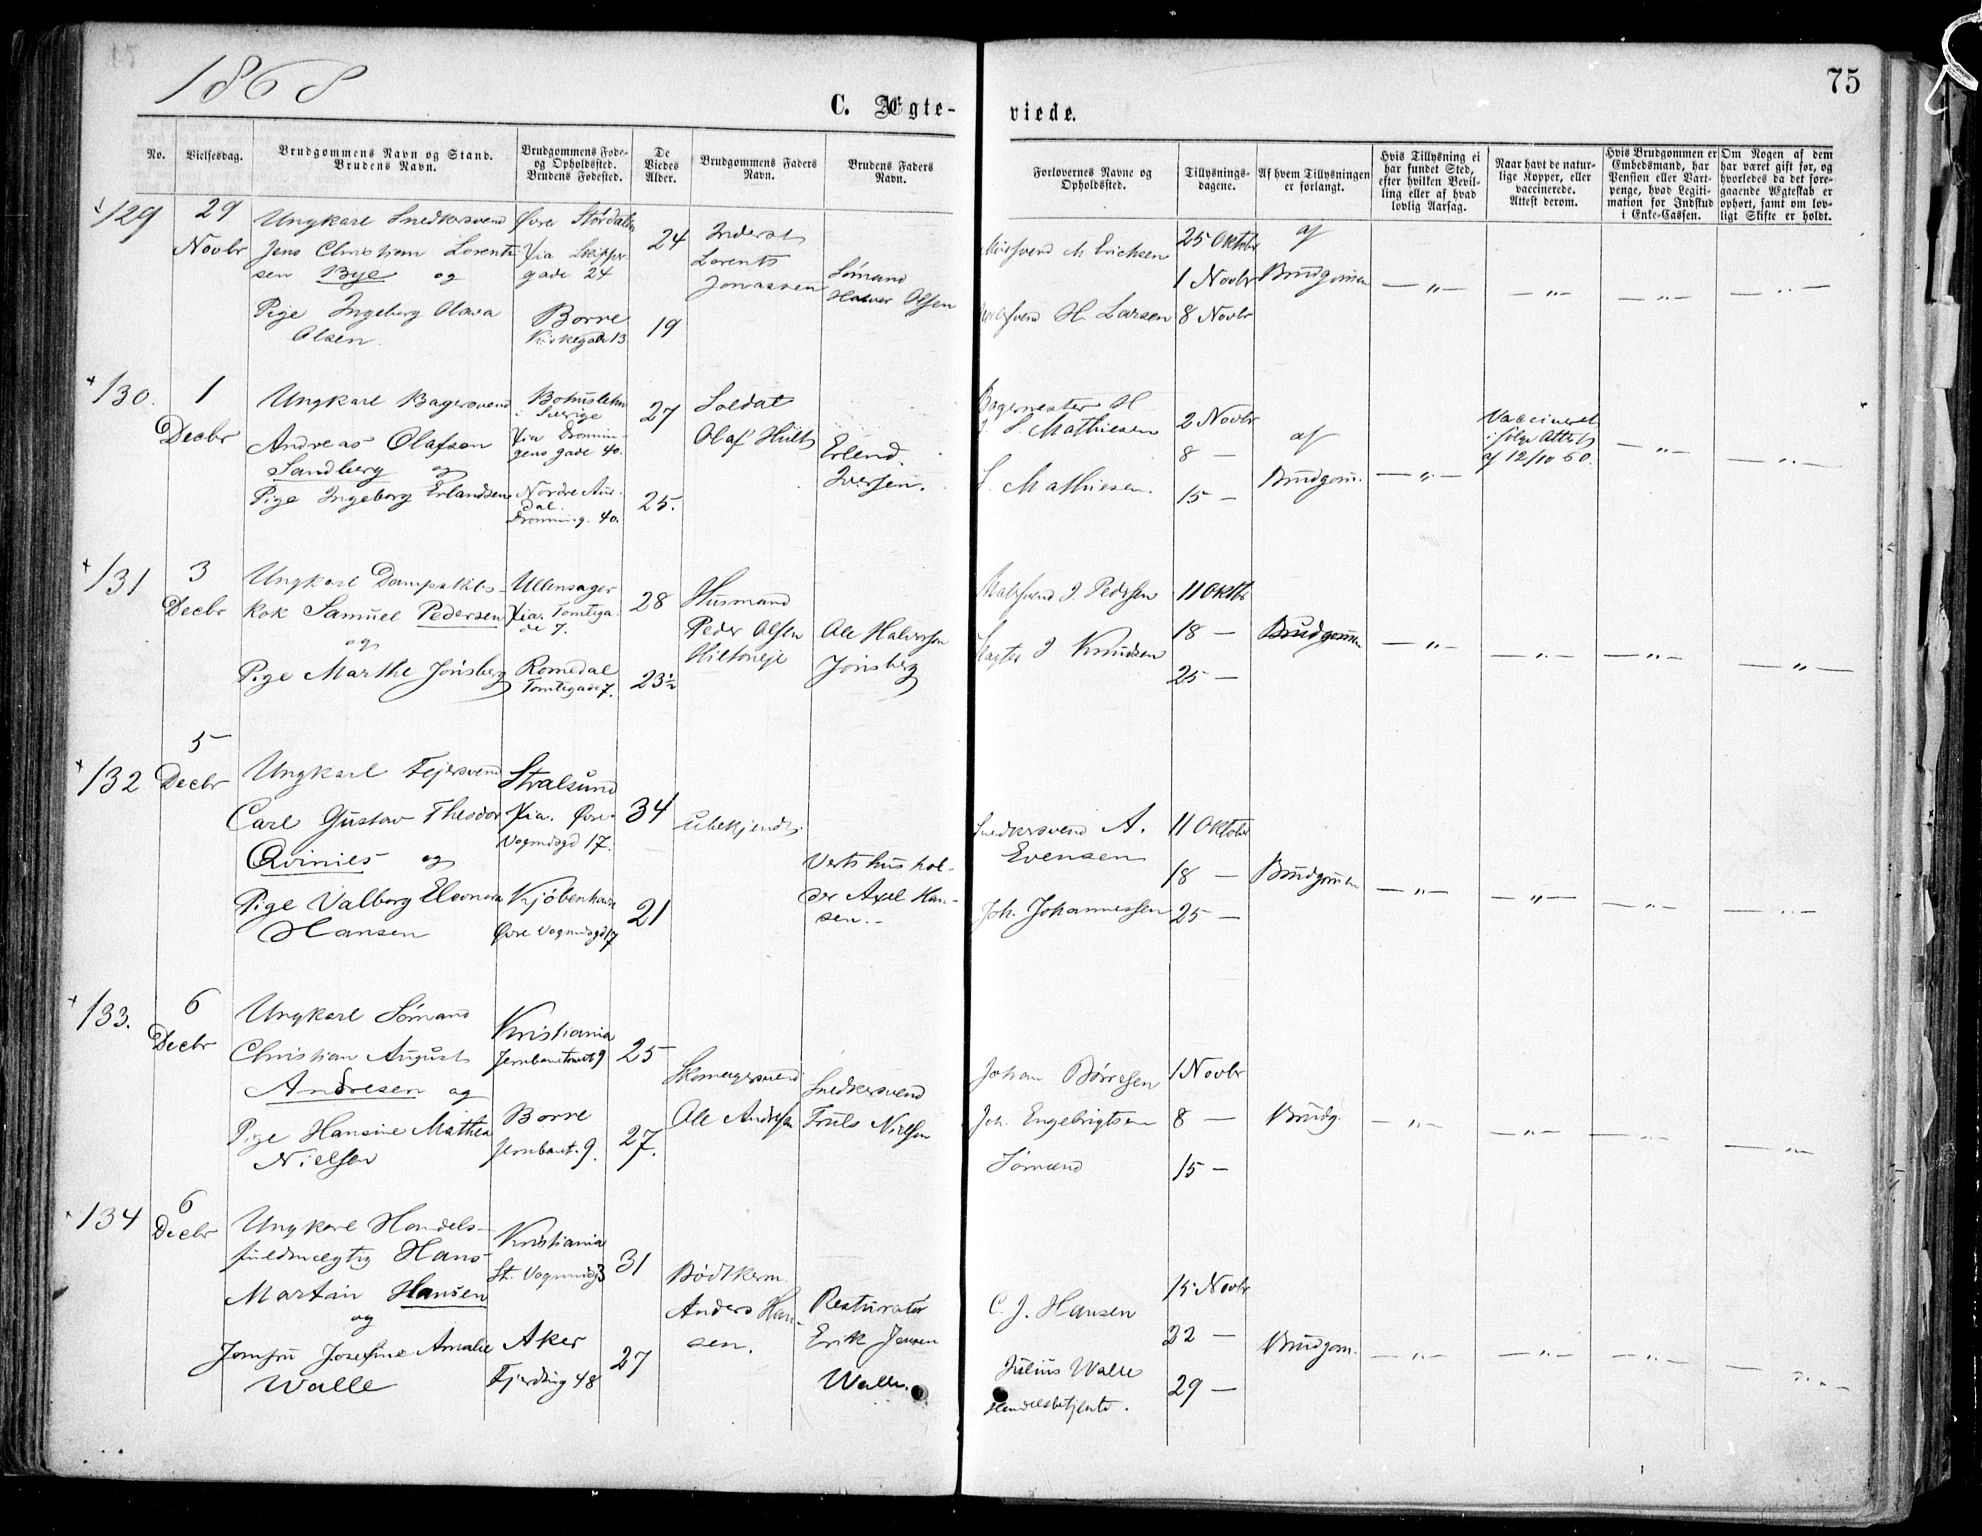 1868
75
C. Ægte-
viede.
No.
Vielsesdag.
Brudgommens Navn og Stand.
Brudens Navn.
Brudgommens Føde-
og Opholdssted.
Brudens Fødested.
De
Viedes
Alder.
Brudgommens Faders
Navn.
Brudens Faders
Navn.
Forlovernes Navne og
Opholdssted.
Tillysnings-
dagene.
Af hvem Tillysningen
er forlangt.
Hvis Tillysning ei
har fundet Sted,
efter hvilken Bevil-
ling eller af hvad
lovlig Aarsag.
Naar havt de natur-
lige Kopper, eller
vaccinerede.
Attest derom.
Hvis Brudgommen er
Embedsmand, har
Pension eller Vart-
penge, hvad Legiti-
mation for Indskud
i Enke-Cassen.
Om Nogen af dem
har været gift før, og
hvorledes da det fore-
gaaende Ægteskab er
ophørt, samt om lov-
ligt Skifte er holdt.
129
29
Novbr
Ungkarl Snedkersvend
Jens Christian Lorent-
sen Bye og
Pige Ingeborg Olava
Olsen.
Øvre Stördalen
Xia Skipper-
gade 24
Borre
Kirkegade 13
24
19
Inderst
Lorents
Jonassen
Sømand
Halvor Olsen
M Erichsen
H. Larsen
25 Oktobr
1 Novbr
8 Novbr
af
Brudgommen
— „ —
— „ —
— „ —
— „ —
130.
1
Decbr
Ungkarl Bagersvend
Andreas Olafsen
Sandberg og
Pige Ingeborg Erlandsen
Bohuslehn
i Sverige
Xia Dronnin-
gens gade 40.
Nordre Aur-
dal.
Dronning. 40.
27
25.
Soldat
Olaf Hult
Erlend
Iversen.
Bagermester H
S. Mathiesen
S. Mathiesen.
2 Novbr
8 —
15 —
af
Brudgom.
— „ —
Vaccineret
ifølge Attest
af 12/10 60.
— „ —
— „ —
131
3
Decbr
Ungkarl Dampskibs-
kok Samuel Pedersen
og
Pige Marthe Jönsberg
Ullensager
Xia. Tomtega-
de 7.
Romedal
Tomtegade 7.
28
23½
Husmand
Peder Olsen
Hiltoneje
Ole Halvorsen
Jönsberg
Malersvend J. Pedersen
Slagter J Knudsen
11 Oktb
18 —
25 —
Brudgommen
— „ —
— „ —
— „ —
— „ —
132
5
Decbr
Ungkarl Fejersvend
Carl Gustav Theodor
Qvinies og
Pige Valborg Eleonora
Hansen
Stralsund
Xia. Øvre
Vogmdsgd 17.
Kjøbenhavn
Øvre Vogmdsgd 17
34
21
ubekjendt.
Vertshushol-
der Axel Han-
sen.
Snedkersvend A.
Evensen
Joh. Johannessen
11 Oktobr
18 —
25 —
Brudgommen
— „ —
— „ —
— „ —
— „ —
133.
6
Decbr
Ungkarl Sømand
Christian August
Andresen og
Pige Hansine Mathea
Nielsen
Kristiania
Jernbanetorvet 9
Borre
Jernbanet. 9.
25
27.
Skomagersvend
Ole Andresen
Snedkersvend
Truls Nielsen
Johan Börresen
Joh. Engebrigtsen
Sømænd
1 Novbr
8 —
15 —
Brudg.
— „ —
— „ —
— „ —
— „ —
134
6
Decbr
Ungkarl Handels-
fuldmægtig Hans
Martin Hansen
og
Jomfru Josefine Amalie
Walle
Kristiania
St. Vogmdsg 3
Aker
Fjerding 48
31
27
Bödtkerm
Anders Han-
sen.
Resturatör
Erik Jensen
Walle.
C. J. Hansen
Julius Walle
Handelsbetjente.
15 Novbr
22 —
29 —
Brudgom.
— „ —
— „ —
— „ —
— „ —